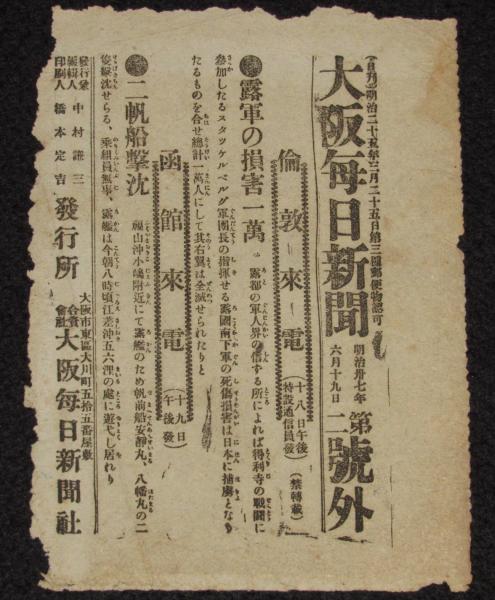 (日刊)明治二十五年三月二十五日第三種郵便物認可
大阪毎日新聞
明治卅七年
六月十九日
第二號外
倫敦來電
十八日午後
特設通信員發
(禁轉載)
●露軍の損害一萬
露都の軍人界の信する所によれば得利寺の戰鬪に
參加したるスタツケルベルグ軍團長の指揮せる露國南下軍の死傷損害は日本に捕虜となり
たるものを合せ總計一萬人にして其右翼は全滅せられたりと
函館來電
(十九日
午後發)
●二帆船擊沈
福山沖小嶋附近にて露艦のため帆前船安靜丸、八幡丸の二
隻擊沈せらる、乘組員無事、露艦は今朝八時頃江差沖五六浬の處に遊弋し居れり
發行兼
編輯人
中村謙三
印刷人
橋本定吉
發行所
大阪市東區大川町五拾五番屋敷
合資
會社
大阪毎日新聞社